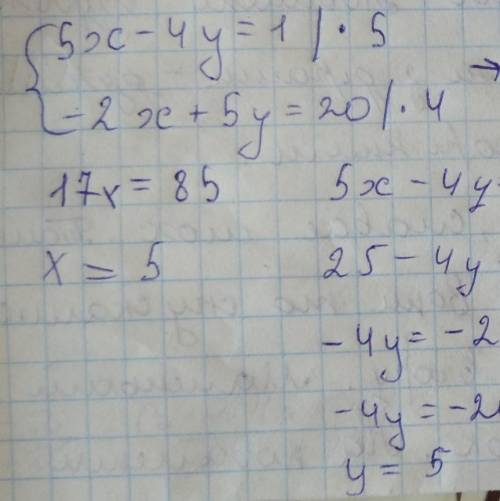 5x - 4y = 1 | · 5
-2x + 5y = 20 | · 4 →
17x = 85 5x - 4y
x = 5 25 - 4y
-4y = -2
-4y = -2
y = 5